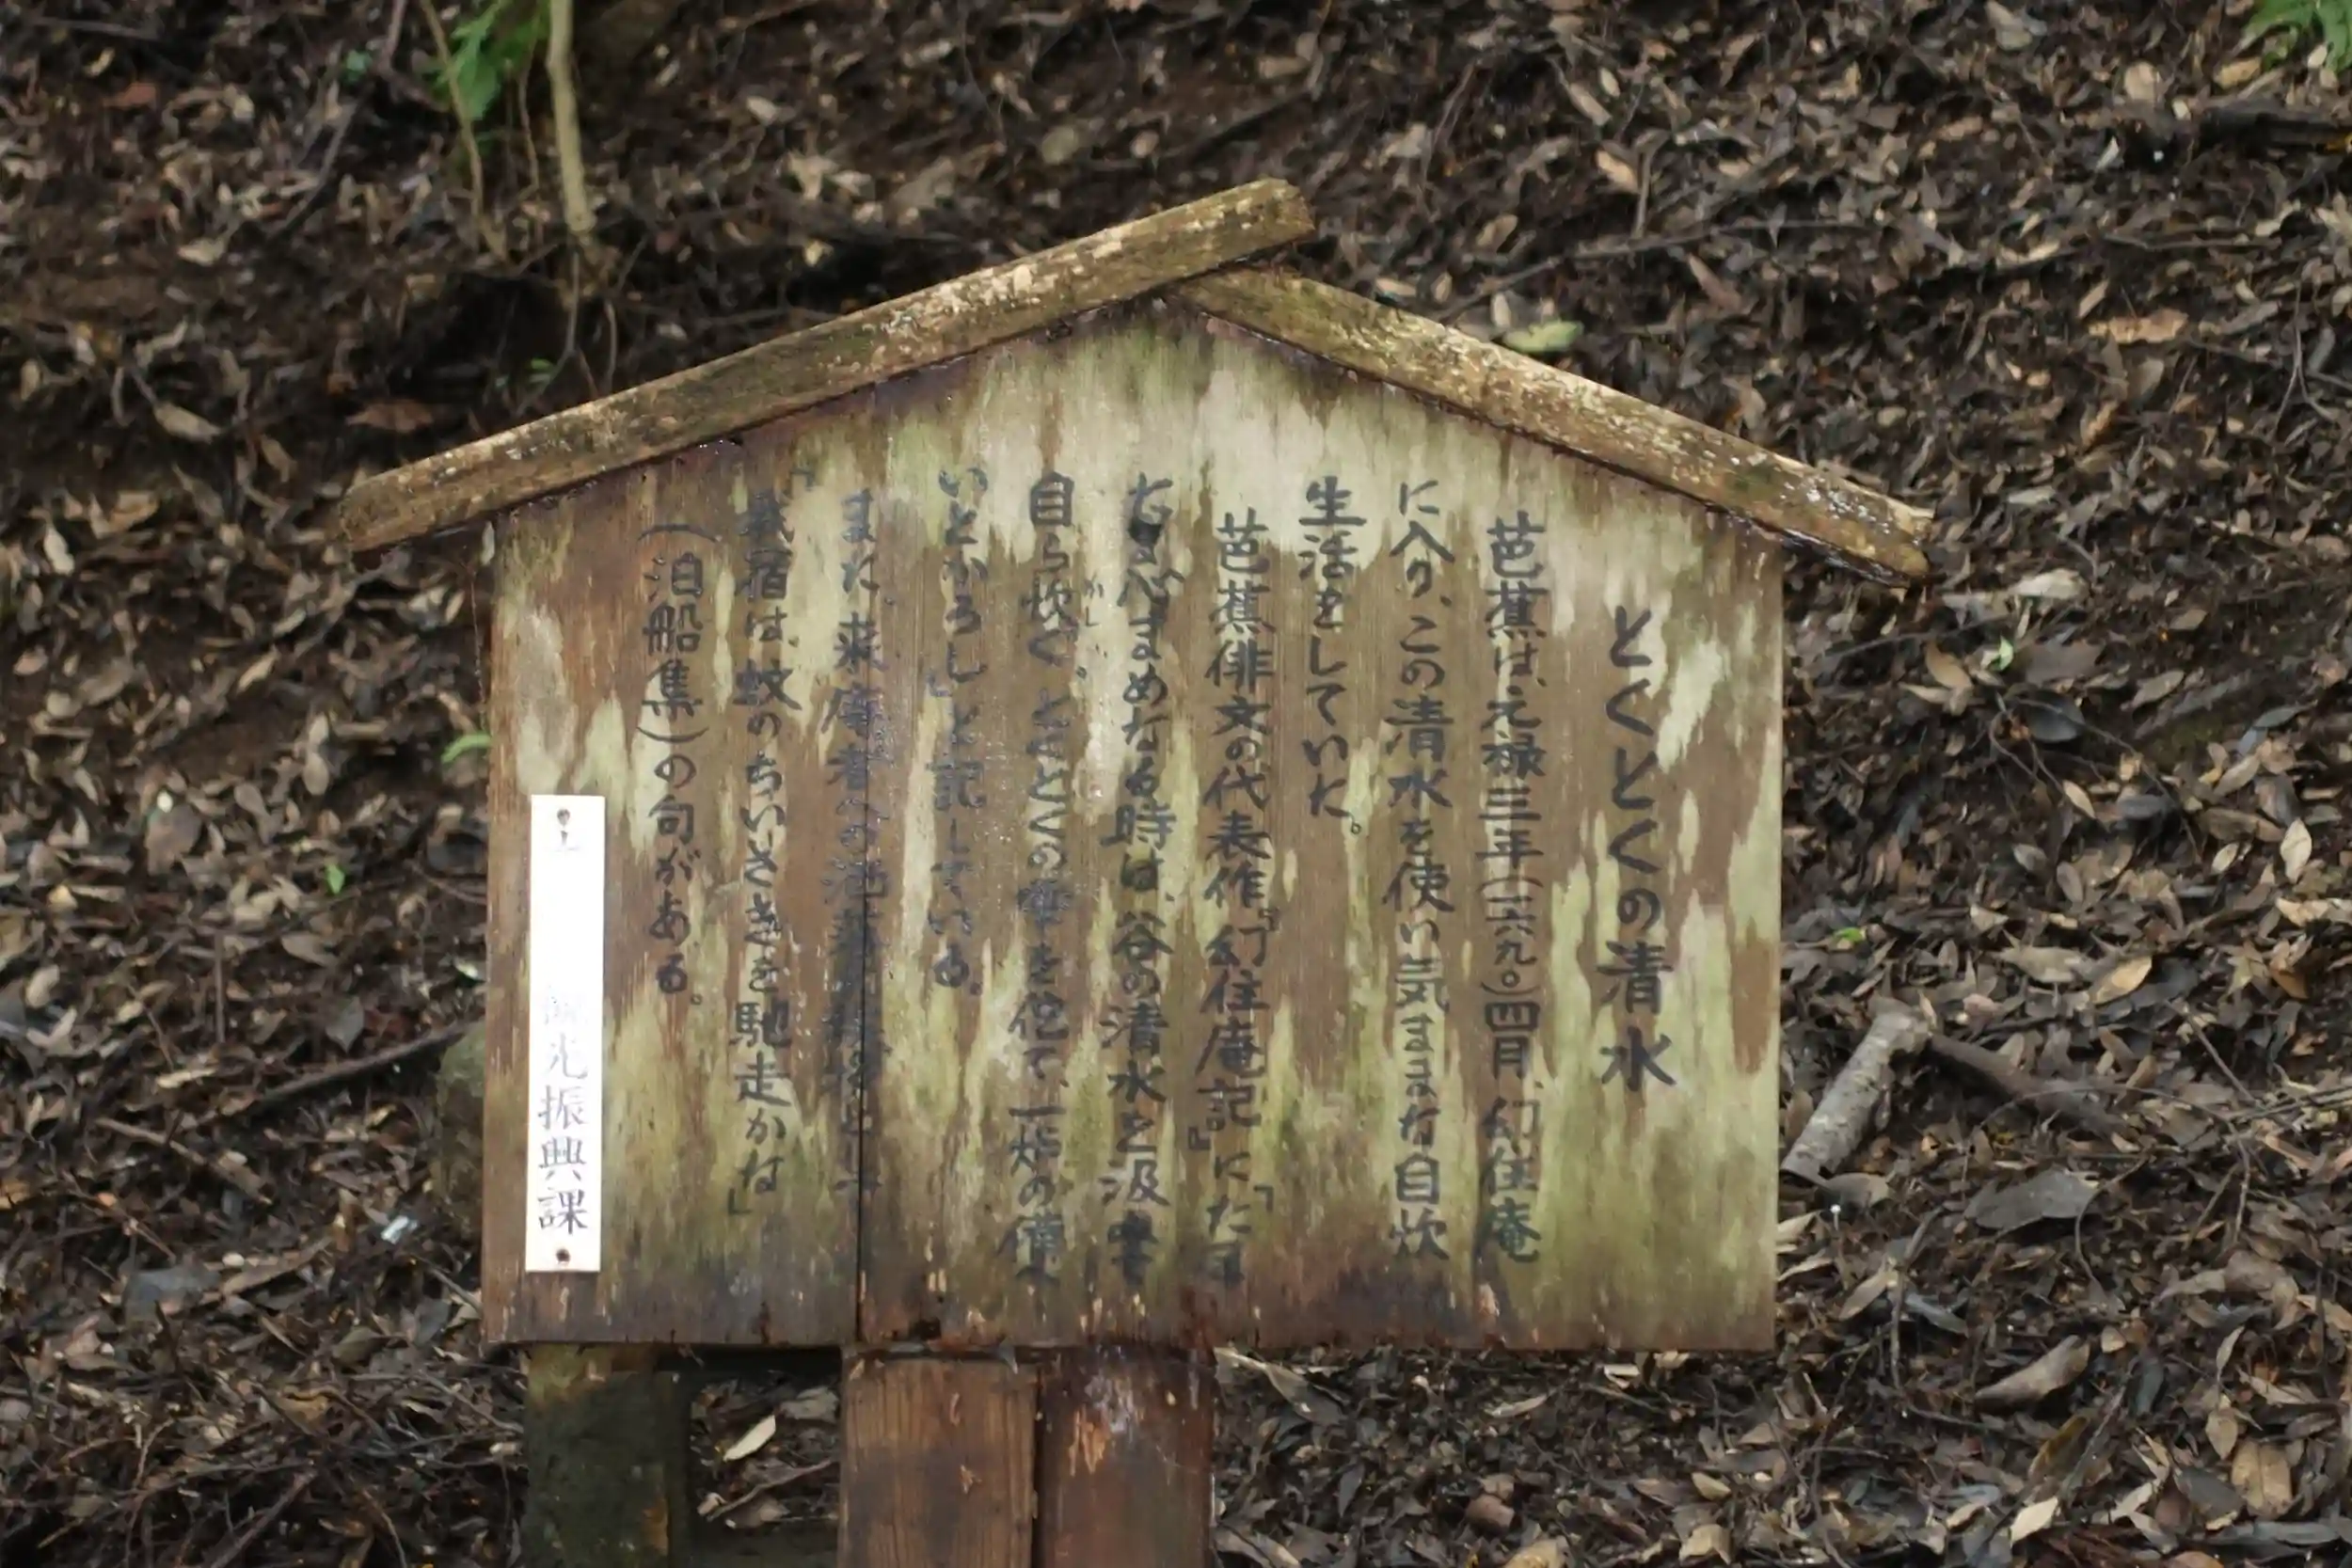 とくとくの清水
芭蕉は、元禄三年(一六九〇)四月、幻住庵
に入り、この清水を使い気ままな自炊
生活をしていた。
芭蕉俳文の代表作『幻住庵記』に「たま
たま心まめなる時は、谷の清水を汲みて
自ら炊ぐ。とくとくの雫を侘て、一炉の備へ
かし
いとかろし」と記している。
また、来庵者への
「我宿は、蚊のちいさきを馳走かな」
(泊船集)の句がある。
観光振興課